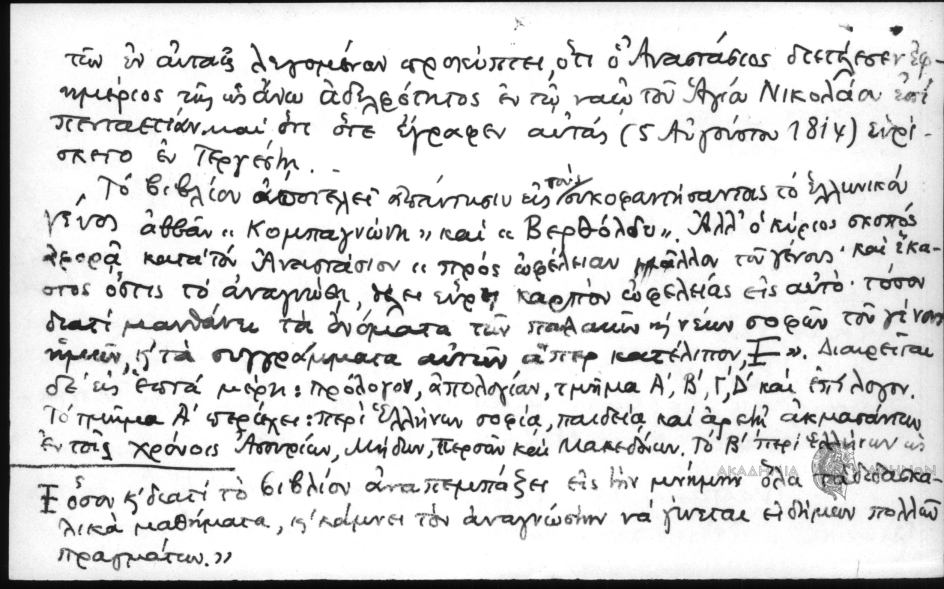 τῶν ἐν αὐταῖς λεγομένων προκύπτει, ὅτι ὁ Ἀναστάσιος διετέλεσεν ἐφ-
ημέριος τῆς ὡς ἄνω ἀδελφότητος ἐν τῷ ναῷ τοῦ Ἁγίου Νικολάου ἐπί
πενταετίαν καί ὅτι ὅτε ἔγραφεν αὐτάς (5 Αὐγούστου 1814) εὑρί-
σκετο ἐν Τεργέστῃ.
Τό βιβλίον ἀποτελεῖ ἀπάντησιν εἰς τούς συκοφαντήσαντας τό ἑλληνικόν
γένος ἀββᾶν "Κομπαγνώνη" καί "Βερθόλδυ". Ἀλλ' ὁ κύριος σκοπός
ἀφορᾷ κατά τόν Ἀναστάσιον "πρός ὠφέλειαν μᾶλλον τοῦ γένους· καί ἕκα-
στος ὅστις τό ἀναγνώθῃ, θέλει εὕρῃ καρπόν ὠφελείας εἰς αὐτό· τόσον
διατί μανθάνει τά ὀνόματα τῶν παλαιῶν ϗ νέων σοφῶν τοῦ γένους
ἡμῶν, ϗ τά συγγράμματα αὐτῶν ἅπερ κατέλιπον, Ξ". Διαιρεῖται
δέ εἰς ἑπτά μέρη: πρόλογον, ἀπολογίαν, τμῆμα Α', Β', Γ', Δ' καί ἐπίλογον.
Τό τμῆμα Α' περιέχει: περί Ἑλλήνων σοφίᾳ, παιδείᾳ καί ἀρετῇ ἀκμασάντων
ἐν τοῖς χρόνοις Ἀσσυρίων, Μήδων, Περσῶν καί Μακεδόνων. Τό Β' περί Ἑλλήνων ὡς
Ξ ὅσον ϗ διατί τό βιβλίον ἀναπεμπάζει εἰς τήν μνήμην ὅλα τά διδασκα-
λικά μαθήματα, ϗ κάμνει τόν ἀναγνώστην νά γίνεται εἰδήμων πολλῶν
πραγμάτων."
ΑΚΑΔΗΜΙΑ ΑΘΗΝΩΝ